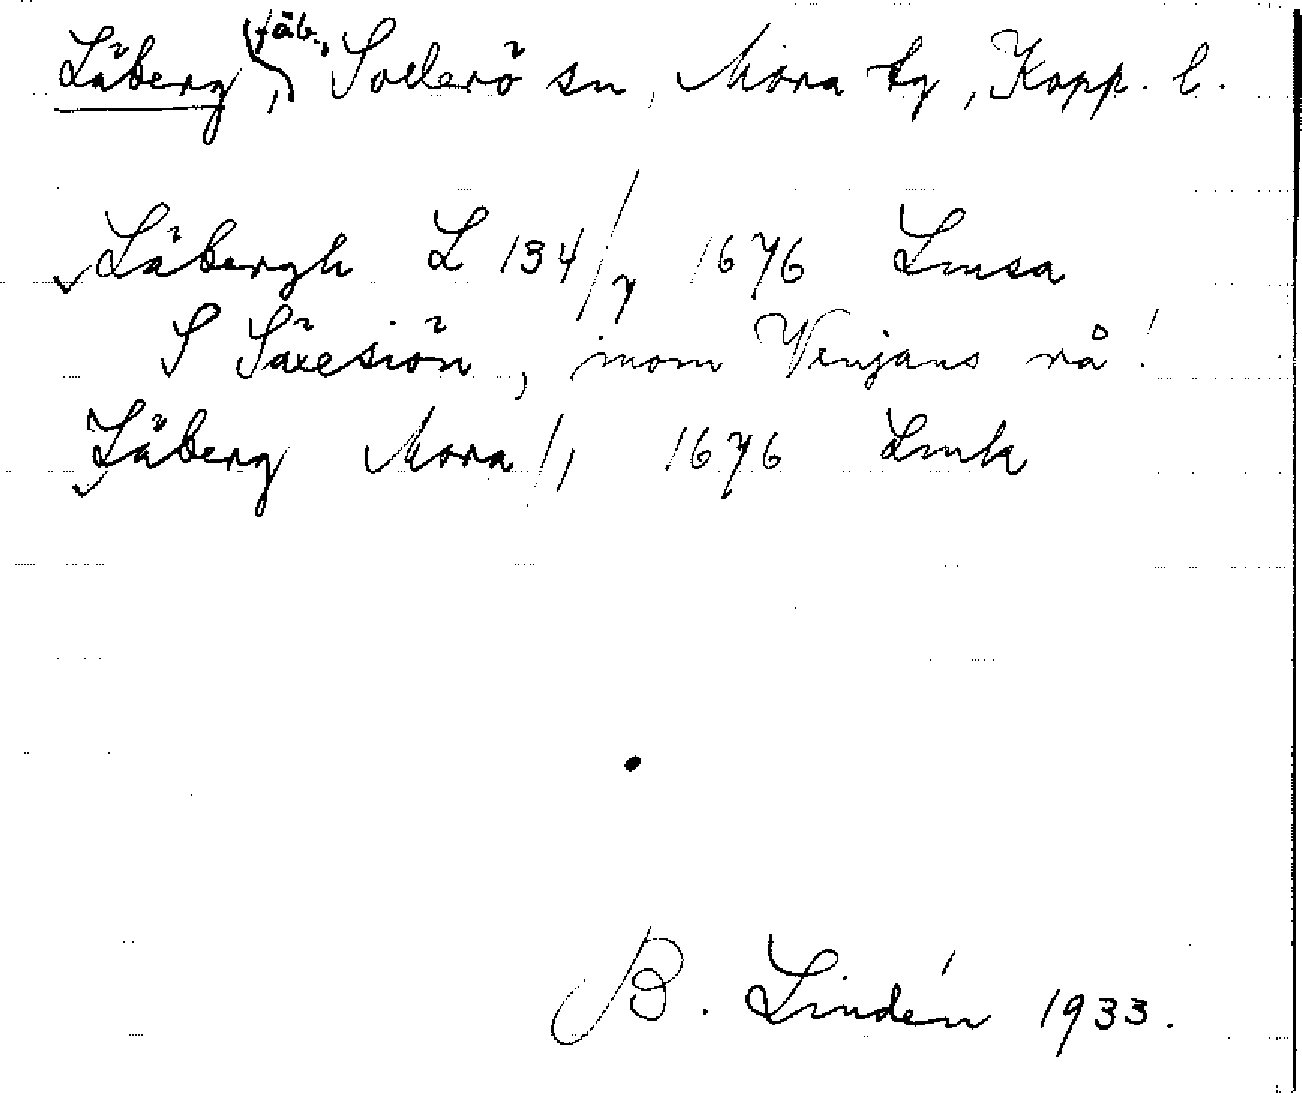 Läberg, fäb., Sollerö sn, Mora tg, Kopp. l.
Läbergh L 134/7 1676 Lmsa
S Säxesiön, inom Venjans rå!
Läberg Mora 1/1 1676 Lmk
B. Lindén 1933.